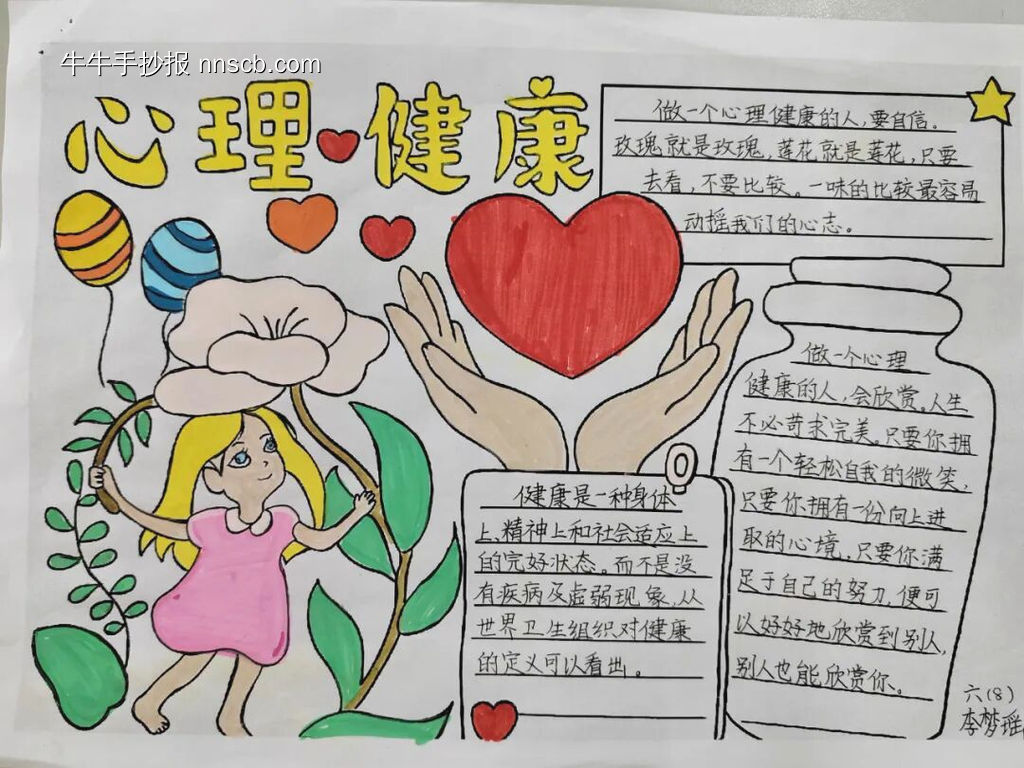 牛牛手抄报 nnscb.com
心理健康
做一个心理健康的人,要自信。
玫瑰就是玫瑰,莲花就是莲花,只要
去看,不要比较。一味的比较最容易
动摇我们的心志。
做一个心理
健康的人,会欣赏。人生
不必苛求完美。只要你拥
有一个轻松自我的微笑,
只要你拥有一份向上进
取的心境,只要你满
足于自己的努力,便可
以好好地欣赏到别人,
别人也能欣赏你。
健康是一种身体
上、精神上和社会适应上
的完好状态。而不是没
有疾病及虚弱现象,从
世界卫生组织对健康
的定义可以看出。
六(8)
李梦瑶